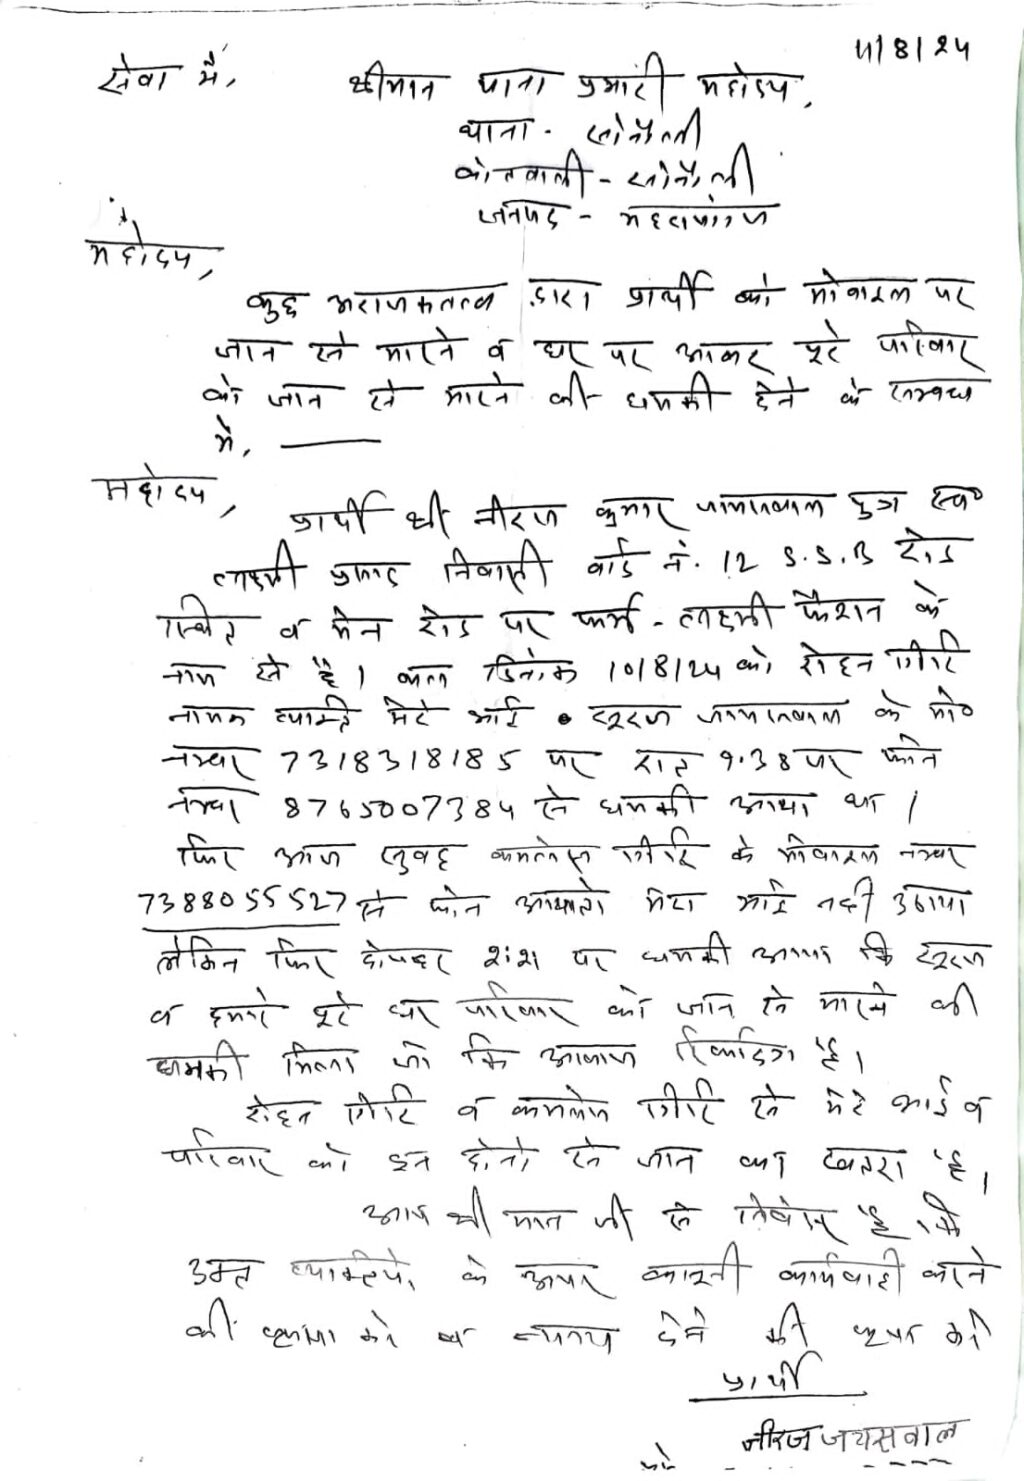 11/8/24
सेवा में,
श्रीमान थाना प्रभारी महोदय,
थाना - सोनौली
कोतवाली - सोनौली
जनपद - महराजगंज
महोदय,
कुछ अराजकतत्व द्वारा प्रार्थी को मोबाइल पर
जान से मारने व घर पर आकर पूरे परिवार
को जान से मारने की धमकी देने के सम्बन्ध
में,
महोदय,
प्रार्थी श्री नीरज कुमार जायसवाल पुत्र स्व०
लक्ष्मी प्रसाद निवासी वार्ड नं. 12 S.S.B रोड
स्थित व मेन रोड पर फर्म - लक्ष्मी फैशन के
नाम से है। कल दिनांक 10/8/24 को रोहन गीरि
नामक व्यक्ति मेरे भाई सूरज जायसवाल के मो०
नम्बर 7318318185 पर रात 9.38 पर फोन
नम्बर 8765007384 से धमकी आया था।
फिर आज सुबह कमलेस गीरि के मोबाइल नम्बर
7388055527 से फोन आया तो मेरा भाई नही उठाया
लेकिन फिर दोपहर पर धमकी आया कि सूरज
व हमारे पूरे घर परिवार को जान से मारने की
धमकी मिला जो कि आवाज रिकार्डिंग है।
रोहन गीरि व कमलेस गीरि से मेरे भाई व
परिवार को इन दोनो से जान का खतरा है,
आप श्री मान जी से निवेदन है, कि
उक्त व्यक्तियो के ऊपर कानूनी कार्यवाही करने
की कृपा करे व न्याय देने की कृपा करे
प्रार्थी
नीरज जयसवाल